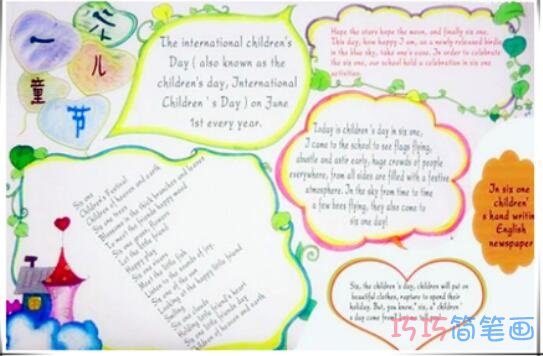 六一
儿
童
节
The international children's
Day ( also known as the
children's day, International
Children ' s Day ) on June
1st every year.
Hope the stars hope the moon, and finally six one.
This day, how happy I am, as a newly released birdie
in the blue sky, take one's ease. In order to celebrate
the six one, our school held a celebration in six one
activities.
Today is children's day in six one,
I came to the school to see flags flying,
abustle and astir early, huge crowds of people
everywhere, from all sides are filled with a festive
atmosphere. In the sky from time to time
a few bees flying, they also come to
six one day!
In six one
children'
s hand writin
English
newspaper
Six one
Children's Festival
Children of heaven and earth
Six one trees
Blossoms in the thick branches and leaves
To meet the friends happy mood
Six one grass, flowers
Let the little friend
Happy play
Six one rivers
Meet the little fish
Listen to the sounds of joy.
Six one of the sun
Looking at the happy little friend
Smiling
Six one clouds
Holding little friend's heart
Six one little friends day
Children of heaven and earth
Six, the children 's day, children will put on
beautiful clothes, rapture to spend their
holiday. But, you know," six, a" children '
s day come from? Let me tell you
巧巧简笔画